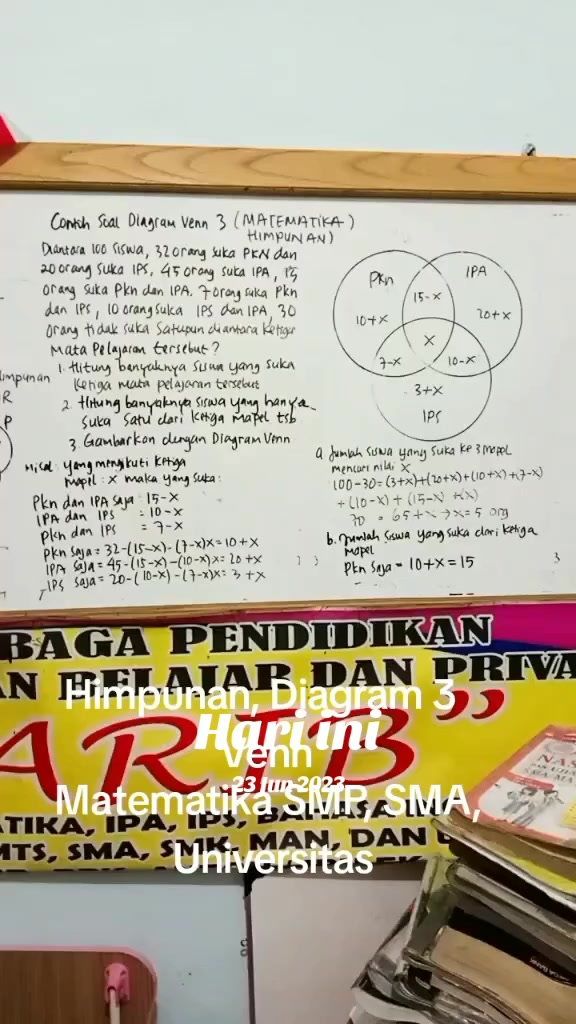 Contoh Soal Diagram Venn 3 (MATEMATIKA)
HIMPUNAN)
Diantara 100 siswa, 32 orang suka PKN dan
20 orang suka IPS, 45 orang suka IPA, 15
orang suka Pkn dan IPA. 7 orang suka Pkn
dan IPS, 10 orang suka IPS dan IPA, 30
orang tidak suka satupun diantara ketiga
Mata Pelajaran tersebut?
1. Hitung banyaknya siswa yang suka
ketiga mata pelajaran tersebut
2. Hitung banyaknya siswa yang hanya
suka satu dari ketiga mapel tsb
3. Gambarkan dengan Diagram Venn
Misal: yang mengikuti ketiga
mapel: x maka yang suka:
Pkn dan IPA saja: 15-x
IPA dan IPS = 10-x
Pkn dan IPS = 7-x
Pkn saja = 32-(15-x)-(7-x)x = 10+x
IPA saja = 45-(15-x)-(10-x)x = 20+x
IPS saja = 20-(10-x)-(7-x)x = 3+x
impunan
R
P
Pkn
IPA
15-x
10+x
20+x
x
7-x
10-x
3+x
IPS
a. Jumlah siswa yang suka ke 3 mapel
mencari nilai x
100-30=(3+x)+(20+x)+(10+x)+(7-x)
+(10-x)+(15-x)+(x)
70 = 65+x→x=5 org
b. Jumlah siswa yang suka dari ketiga
mapel
Pkn saja = 10+x = 15
BAGA PENDIDIKAN
AN BELAJAR DAN PRIVA
Himpunan, Diagram 3
Hari ini
Venn
23 Jun 2023
Matematika SMP, SMA,
Universitas
TIKA, IPA, IPS, BAHASA
MTS, SMA, SMK, MAN, DAN
NAS